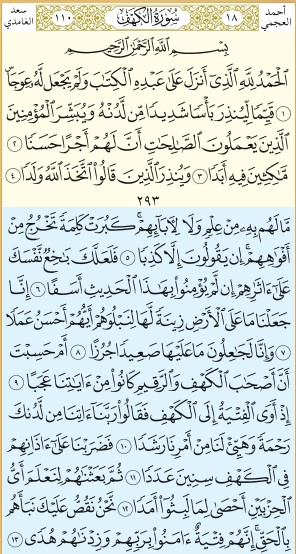 أحمد العجمي ١٨ سُورَةُ الكَهْفِ ١١٠ سعد الغامدي
بِسْمِ اللَّهِ الرَّحْمَٰنِ الرَّحِيمِ
الْحَمْدُ لِلَّهِ الَّذِي أَنزَلَ عَلَىٰ عَبْدِهِ الْكِتَابَ وَلَمْ يَجْعَل لَّهُ عِوَجَا
١ قَيِّمًا لِّيُنذِرَ بَأْسًا شَدِيدًا مِّن لَّدُنْهُ وَيُبَشِّرَ الْمُؤْمِنِينَ
الَّذِينَ يَعْمَلُونَ الصَّالِحَاتِ أَنَّ لَهُمْ أَجْرًا حَسَنًا ٢
مَّاكِثِينَ فِيهِ أَبَدًا ٣ وَيُنذِرَ الَّذِينَ قَالُوا اتَّخَذَ اللَّهُ وَلَدًا ٤
٢٩٣
مَّا لَهُم بِهِ مِنْ عِلْمٍ وَلَا لِآبَائِهِمْ كَبُرَتْ كَلِمَةً تَخْرُجُ مِنْ
أَفْوَاهِهِمْ إِن يَقُولُونَ إِلَّا كَذِبًا ٥ فَلَعَلَّكَ بَاخِعٌ نَّفْسَكَ
عَلَىٰ آثَارِهِمْ إِن لَّمْ يُؤْمِنُوا بِهَٰذَا الْحَدِيثِ أَسَفًا ٦ إِنَّا
جَعَلْنَا مَا عَلَى الْأَرْضِ زِينَةً لَّهَا لِنَبْلُوَهُمْ أَيُّهُمْ أَحْسَنُ عَمَلًا
٧ وَإِنَّا لَجَاعِلُونَ مَا عَلَيْهَا صَعِيدًا جُرُزًا ٨ أَمْ حَسِبْتَ
أَنَّ أَصْحَابَ الْكَهْفِ وَالرَّقِيمِ كَانُوا مِنْ آيَاتِنَا عَجَبًا ٩
إِذْ أَوَى الْفِتْيَةُ إِلَى الْكَهْفِ فَقَالُوا رَبَّنَا آتِنَا مِن لَّدُنكَ
رَحْمَةً وَهَيِّئْ لَنَا مِنْ أَمْرِنَا رَشَدًا ١٠ فَضَرَبْنَا عَلَىٰ آذَانِهِمْ
فِي الْكَهْفِ سِنِينَ عَدَدًا ١١ ثُمَّ بَعَثْنَاهُمْ لِنَعْلَمَ أَيُّ
الْحِزْبَيْنِ أَحْصَىٰ لِمَا لَبِثُوا أَمَدًا ١٢ نَّحْنُ نَقُصُّ عَلَيْكَ نَبَأَهُم
بِالْحَقِّ إِنَّهُمْ فِتْيَةٌ آمَنُوا بِرَبِّهِمْ وَزِدْنَاهُمْ هُدًى ١٣